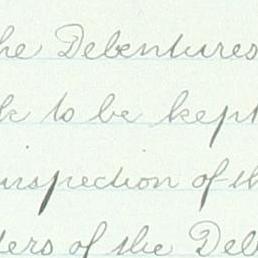 he Debentures
k to be kept
inspection of th
ders of the Deb